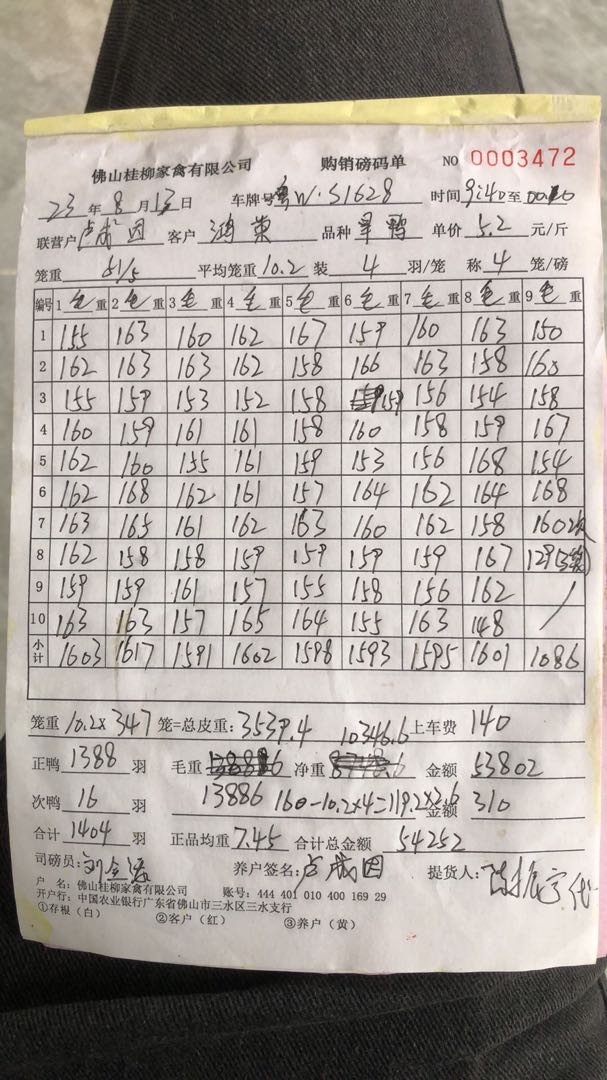 佛山桂柳家禽有限公司 购销磅码单 NO 0003472
23年8月13日 车牌号粤W·S1628 时间9:40至
联营户 客户鸿荣 品种旱鸭 单价5.2元/斤
笼重51/5 平均笼重10.2装4羽/笼 称4笼/磅
编号 1毛重 2毛重 3毛重 4毛重 5毛重 6毛重 7毛重 8毛重 9毛重
1 155 163 160 162 167 159 160 163 150
2 162 163 163 162 158 166 163 158 160
3 155 159 153 152 158 159 156 154 158
4 160 159 161 161 158 160 158 159 167
5 162 160 155 161 159 153 156 168 154
6 162 168 162 161 157 164 162 164 168
7 163 165 161 162 163 160 162 158 160次
8 162 158 158 159 159 159 159 167 129(3笼)
9 159 159 161 157 155 158 156 162
10 163 163 157 165 164 155 163 148
小计 1603 1617 1591 1602 1598 1593 1595 1601 1086
笼重10.2×347笼=总皮重:3539.4 10346.6 上车费140
正鸭1388羽 毛重 净重 金额53802
次鸭16羽 13886 160-10.2×4=119.2×2.6 金额310
合计1404羽 正品均重7.45 合计总金额54252
司磅员: 养户签名: 提货人:
户 名:佛山桂柳家禽有限公司 账号:444 401 010 400 169 29
开户行:中国农业银行广东省佛山市三水区三水支行
①存根(白) ②客户(红) ③养户(黄)